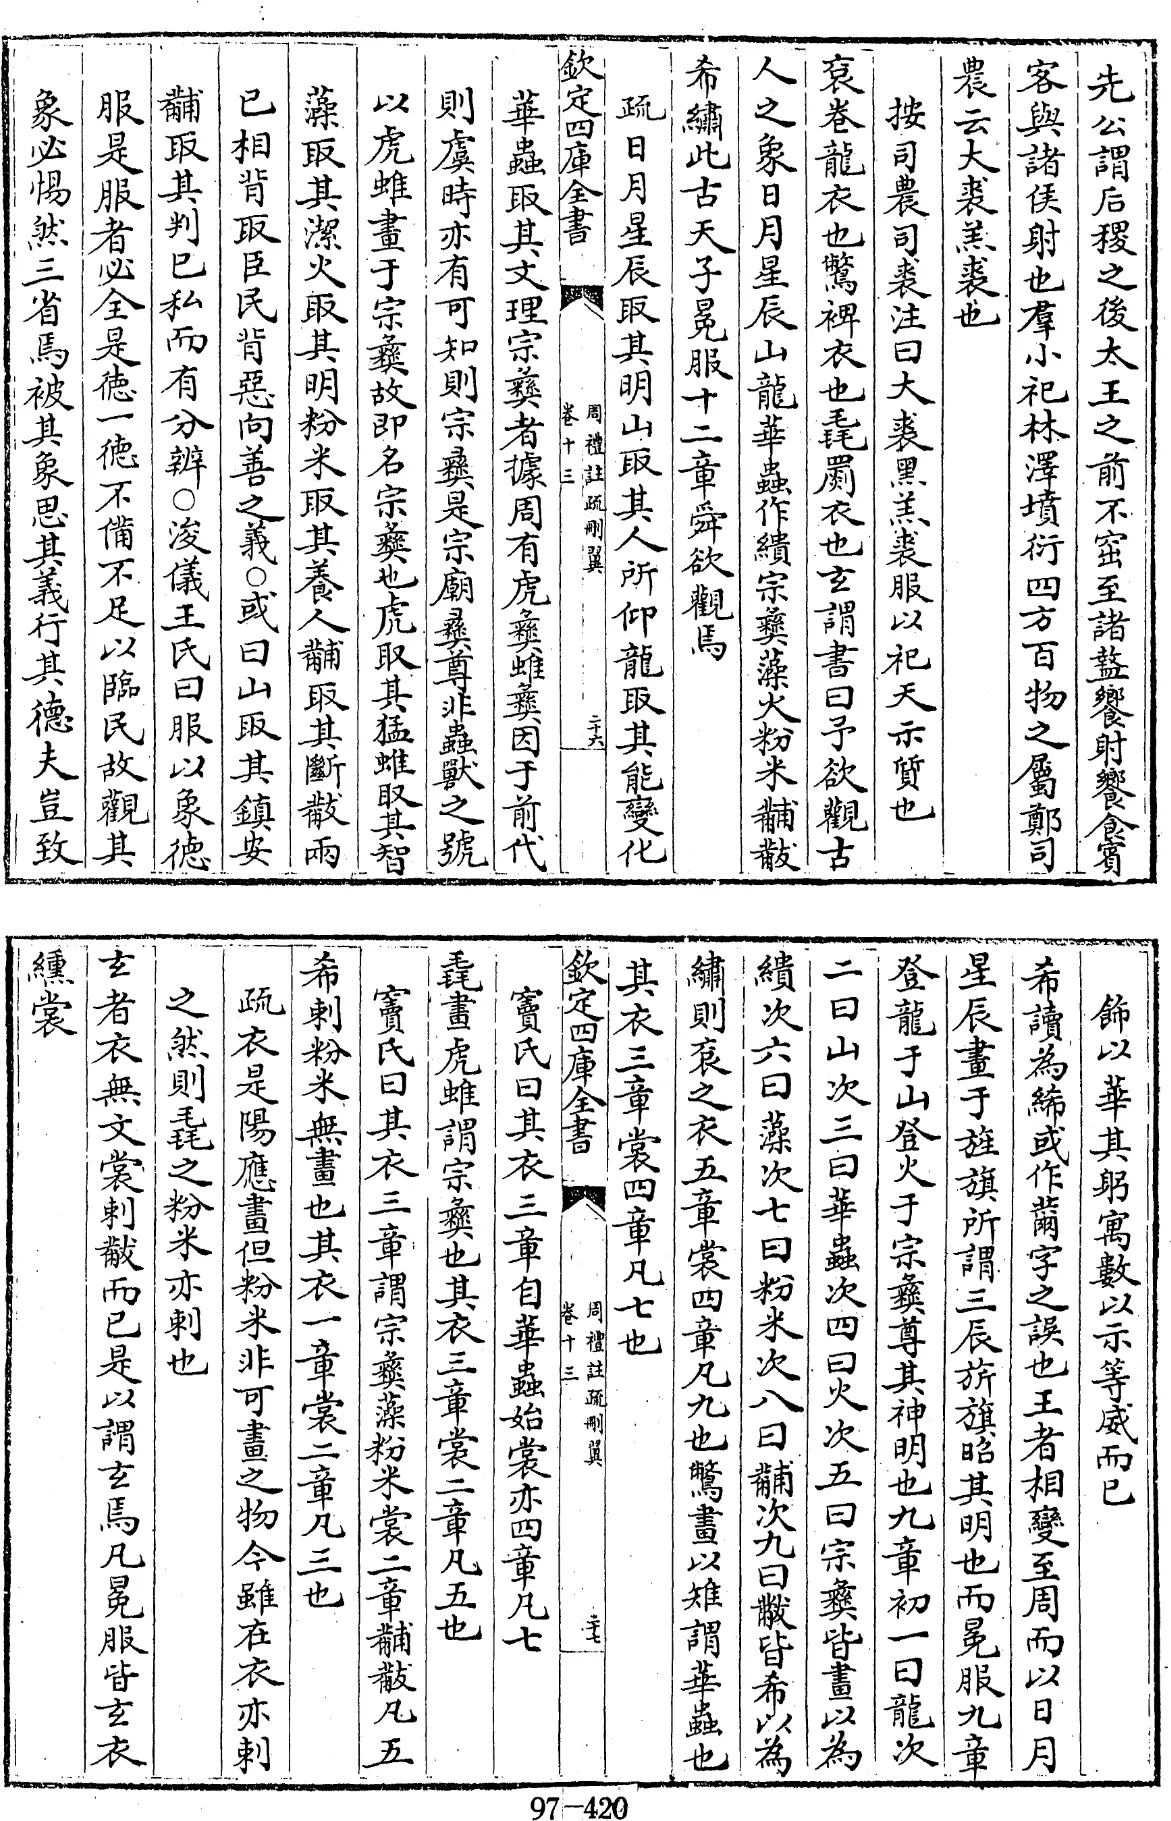 先公謂后稷之後太王之前不窋至諸盩饗射饗食賓
客與諸侯射也羣小祀林澤墳衍四方百物之屬鄭司
農云大裘羔裘也
按司農司裘注曰大裘黑羔裘服以祀天示質也
袞卷龍衣也鷩裨衣也毳罽衣也玄謂書曰予欲觀古
人之象日月星辰山龍華蟲作繢宗彝藻火粉米黼黻
希繡此古天子冕服十二章舜欲觀焉
疏日月星辰取其明山取其人所仰龍取其能變化
欽定四庫全書
周禮註疏刪翼
卷十三
二十六
華蟲取其文理宗彝者據周有虎彝蜼彝因于前代
則虞時亦有可知則宗彝是宗廟彝尊非蟲獸之號
以虎蜼畫于宗彝故即名宗彝也虎取其猛蜼取其智
藻取其潔火取其明粉米取其養人黼取其斷黻兩
已相背取臣民背惡向善之義○或曰山取其鎮安
黼取其判已私而有分辨○浚儀王氏曰服以象德
服是服者必全是德一德不備不足以臨民故觀其
象必惕然三省焉被其象思其義行其德夫豈致
飾以華其躬寓數以示等威而已
希讀為絺或作黹字之誤也王者相變至周而以日月
星辰畫于旌旗所謂三辰旂旗昭其明也而冕服九章
登龍于山登火于宗彝尊其神明也九章初一曰龍次
二曰山次三曰華蟲次四曰火次五曰宗彝皆畫以為
繢次六曰藻次七曰粉米次八曰黼次九曰黻皆希以為
繡則袞之衣五章裳四章凡九也鷩畫以雉謂華蟲也
其衣三章裳四章凡七也
欽定四庫全書
周禮註疏刪翼
卷十三
二十七
竇氏曰其衣三章自華蟲始裳亦四章凡七
毳畫虎蜼謂宗彝也其衣三章裳二章凡五也
竇氏曰其衣三章謂宗彝藻粉米裳二章黼黻凡五
希刺粉米無畫也其衣一章裳二章凡三也
疏衣是陽應畫但粉米非可畫之物今雖在衣亦刺
之然則毳之粉米亦刺也
玄者衣無文裳刺黻而已是以謂玄焉凡冕服皆玄衣
纁裳
97-420